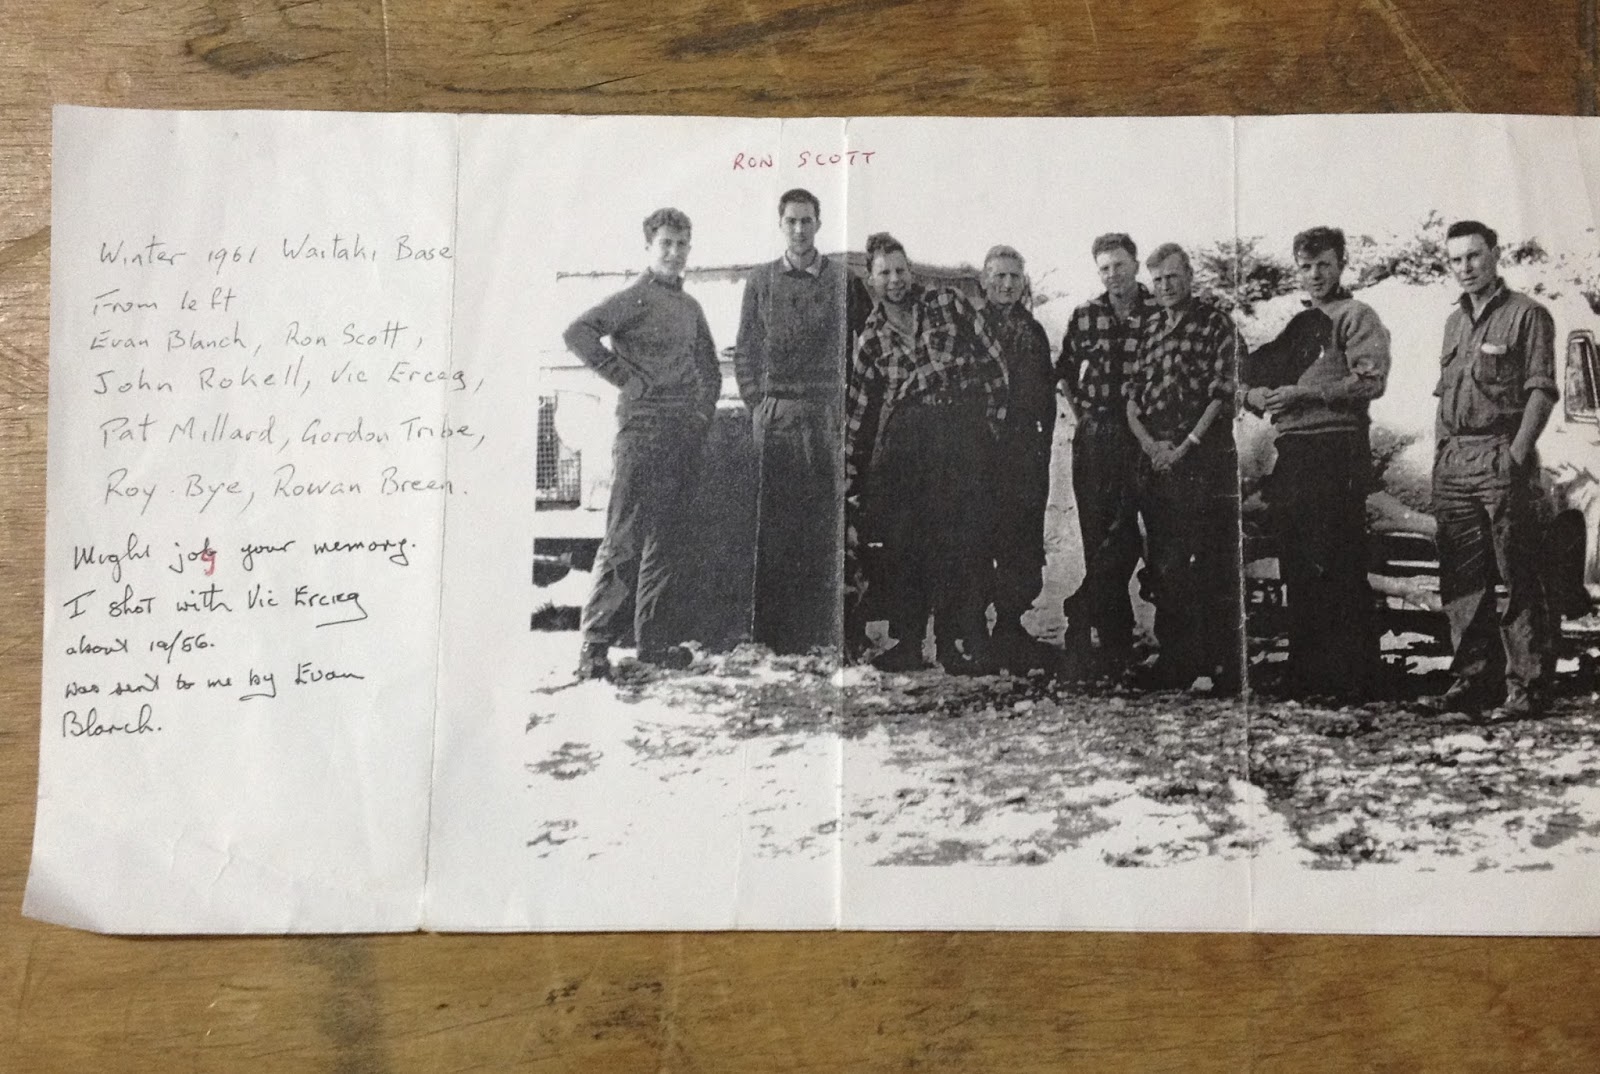 RON SCOTT
Winter 1961 Waitaki Base
From left
Evan Blanch, Ron Scott,
John Rokell, Vic Erceg,
Pat Millard, Gordon Tribe,
Roy Bye, Rowan Breen.
Might jog your memory.
I shot with Vic Erceg
about 19/56.
was sent to me by Evan
Blanch.